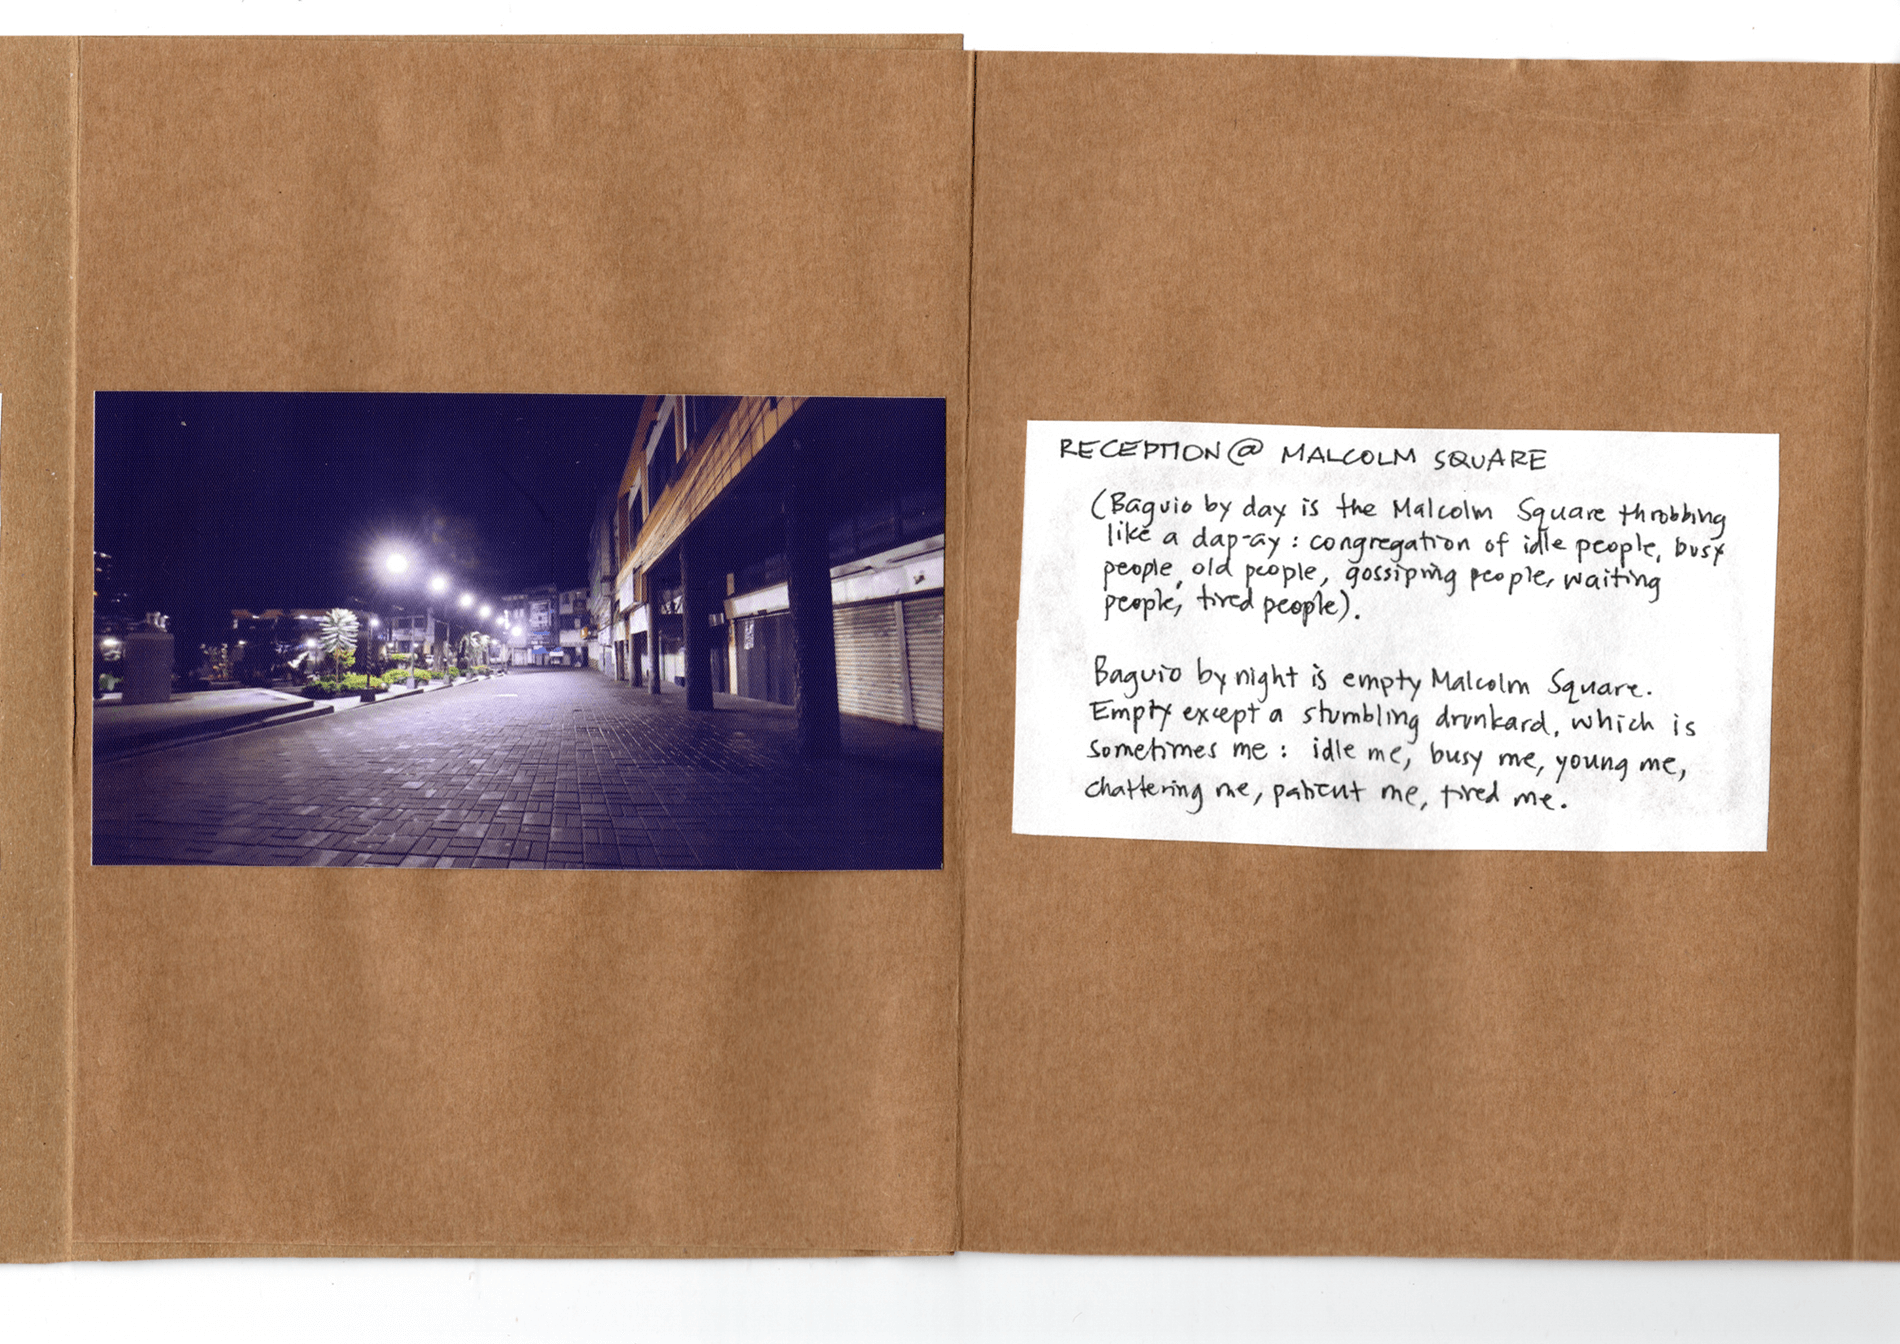 RECEPTION @ MALCOLM SQUARE
(Baguio by day is the Malcolm Square throbbing
like a dap-ay : congregation of idle people, busy
people, old people, gossiping people, waiting
people, tired people).
Baguio by night is empty Malcolm Square.
Empty except a stumbling drunkard, which is
sometimes me : idle me, busy me, young me,
chattering me, patient me, tired me.